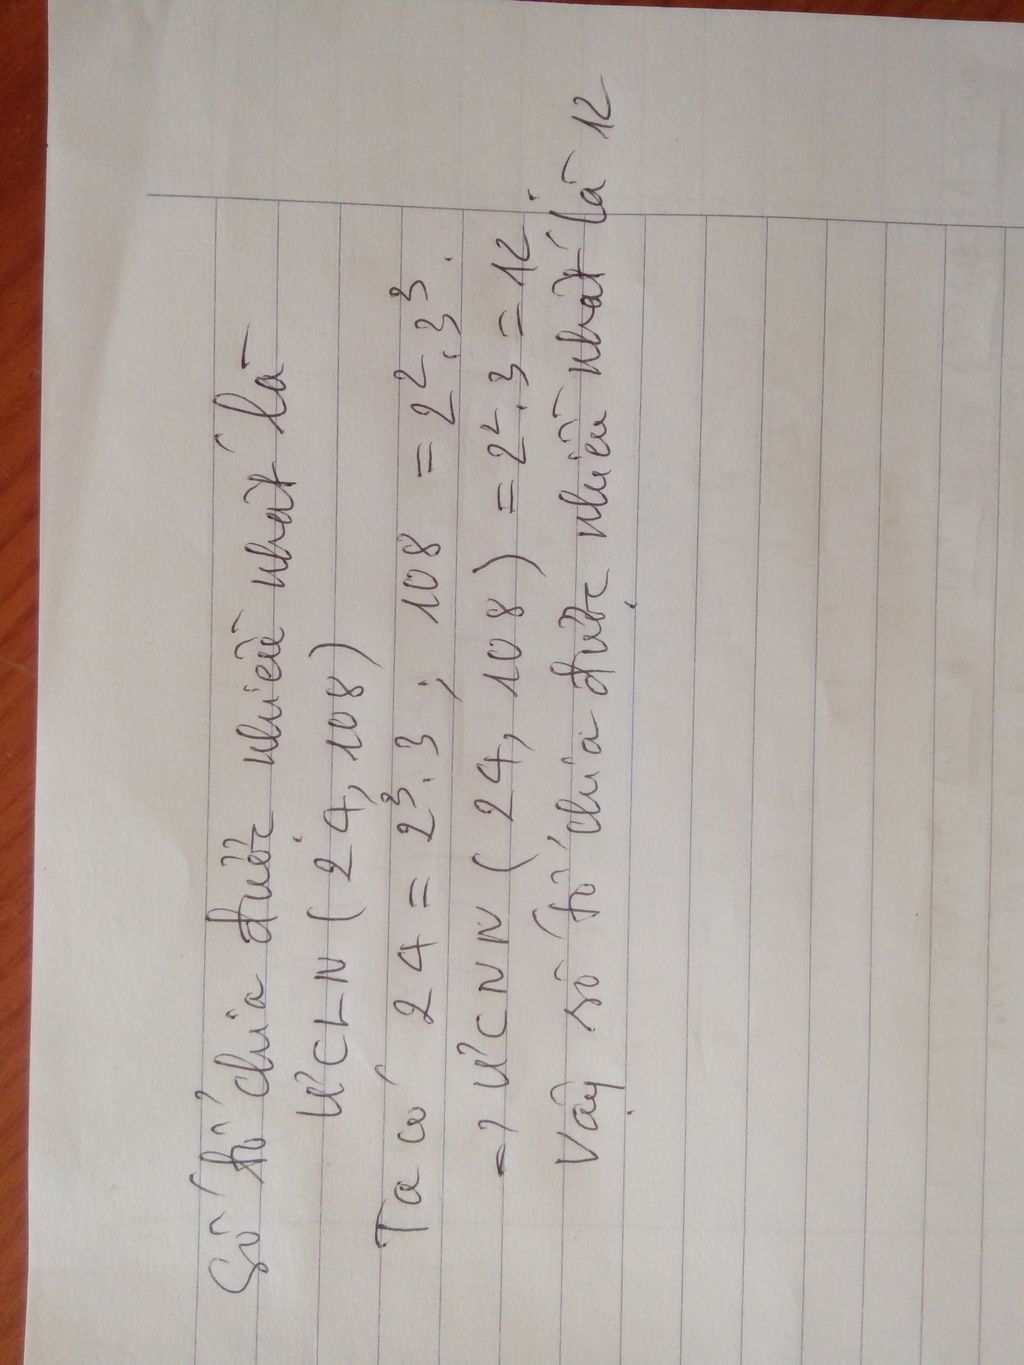 Số tổ chia được nhiều nhất là
ƯCLN (24, 108)
Ta có 24 = 2³.3 ; 108 = 2².3³.
=> ƯCNN (24, 108) = 2².3 = 12.
Vậy số tổ chia được nhiều nhất là 12